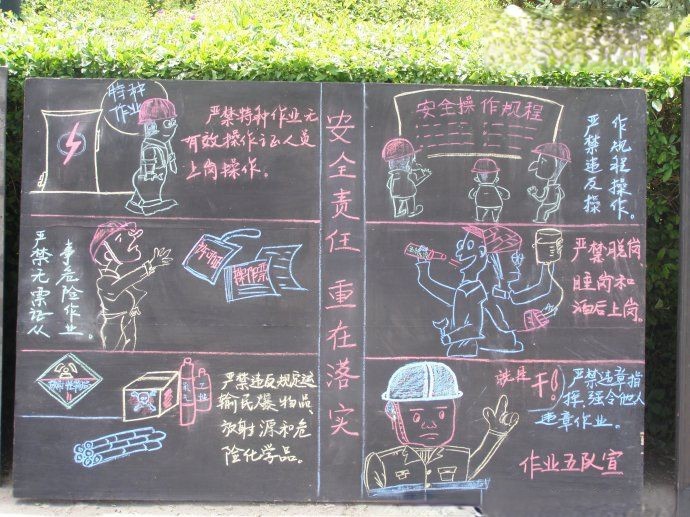 特种
作业
严禁特种作业无
有效操作证人员
上岗操作。
严禁无票证从
事危险作业。
严禁违反规定运
输民爆物品、
放射源和危
险化学品。
安全责任 重在落实
安全操作规程
严禁违反操
作规程操作。
严禁脱岗
睡岗和
酒后上岗。
就是干!!
严禁违章指
挥、强令他人
违章作业。
作业五队宣